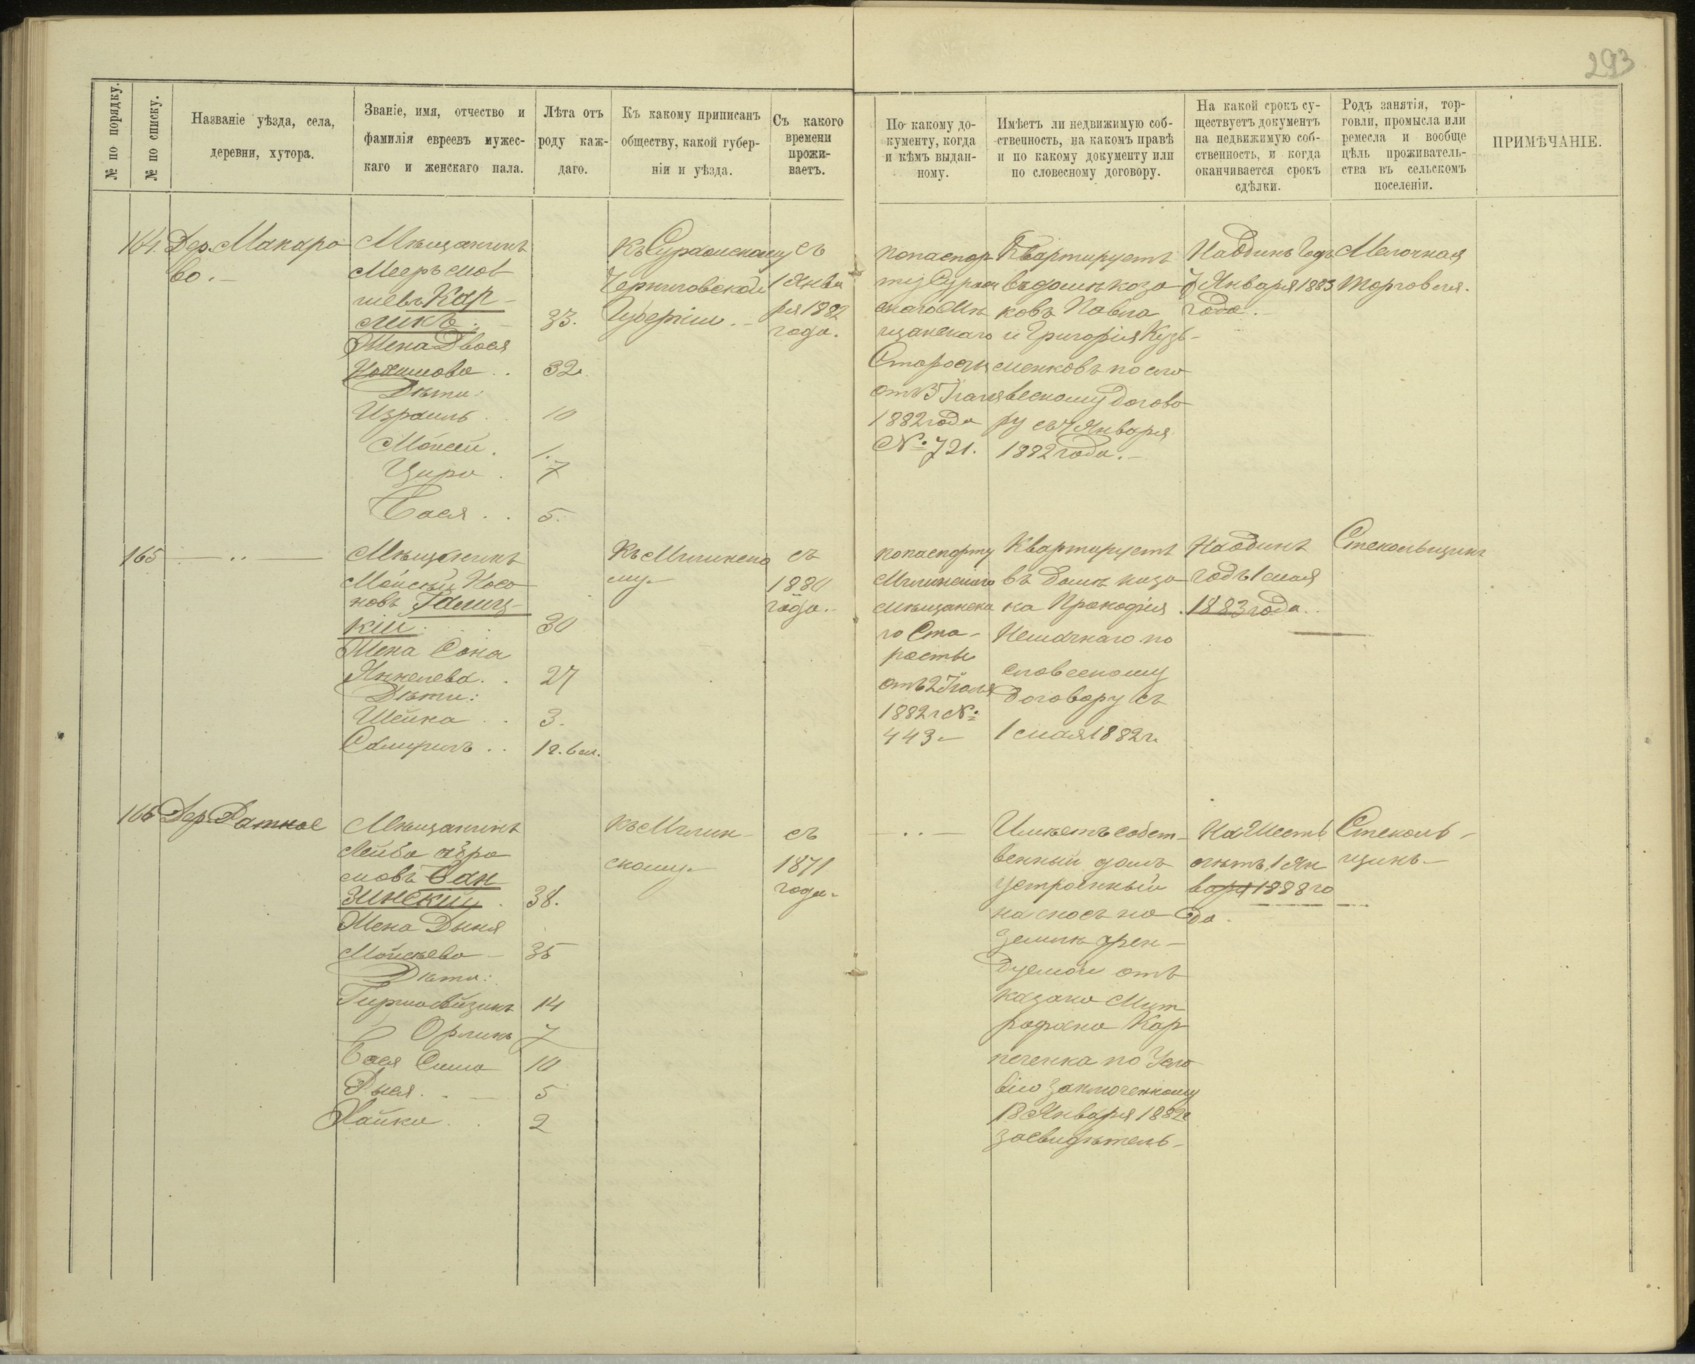 293
№ по порядку.
№ по списку.
Названіе уѣзда, села,
деревни, хутора.
Званіе, имя, отчество и
фамилія евреевъ мужес-
каго и женскаго пала.
Лѣта отъ
роду каж-
даго.
Къ какому приписанъ
обществу, какой губер-
ніи и уѣзда.
Съ какого
времени
прожи-
ваетъ.
По какому до-
кументу, когда
и кѣмъ выдан-
ному.
Имѣетъ ли недвижимую соб-
ственность, на какомъ правѣ
и по какому документу или
по словесному договору.
На какой срокъ су-
ществуетъ документъ
на недвижимую соб-
ственность, и когда
оканчивается срокъ
сдѣлки.
Родъ занятія, тор-
говли, промысла или
ремесла и вообще
цѣль проживатель-
ства въ сельскомъ
поселеніи.
ПРИМѢЧАНІЕ.
164.
Дер. Макаро
во.-
Мѣщанинъ
Мееръ
Кар-
ликъ.
Жена Двося
Дѣти:
Израиль
Мойсей.
Цира.
Бася..
33.
32.
10
1.
7
5.
Къ Суражскому
Черниговской
Губерніи.-
съ
1 Янва
ря 1882
года.
по паспор
ту Сураж
скаго Мѣ
щанскаго
Старосты
отъ 3 Іюля
1882 года
№ 721.
Квартируетъ
въ домѣ коза
ковъ Павла
и Григорія Кузь-
менковъ по сло
весному догово
ру съ 7 Января
1882 года.-
На одинъ Годъ
7 Января 1883
года.-
Мелочная
Торговля.
165
Мѣщанинъ
Галиц-
кій.
Жена Сона
Янкелева..
Дѣти:
Шейна
30
27
3.
Къ Мглинско
му-
съ
1880
года.
по паспорту
Мглинскаго
мѣщанска
го Ста-
росты
отъ 2 Іюля
1882 г №
443.-
Квартируетъ
въ домѣ коза
ка Прокофія
по
словесному
договору съ
1 мая 1882 г.
На одинъ
годъ 1 мая
1883 года..
Стекольщикъ
166
Дер. Ратное
Мѣщанинъ
Лейба Абра
мовъ
Жена Дыня
Мойсеева-
Дѣти:
Орликъ
Бася Сима
Дыся..
Хайка..
38.
35
14
7
10
5
2
Къ Мглин-
скому-
съ
1871
года.
Имѣетъ собст-
венный домъ
устроенный
на сносъ на
землѣ арен-
дуемой отъ
казака Мит
рофана Кар
печенка по Усло
вію заключенному
18 Января 1882
засвидѣтель-
На Шесть
лѣтъ 1 Ян
варя 1888 го
да.
Стеколь-
щикъ-